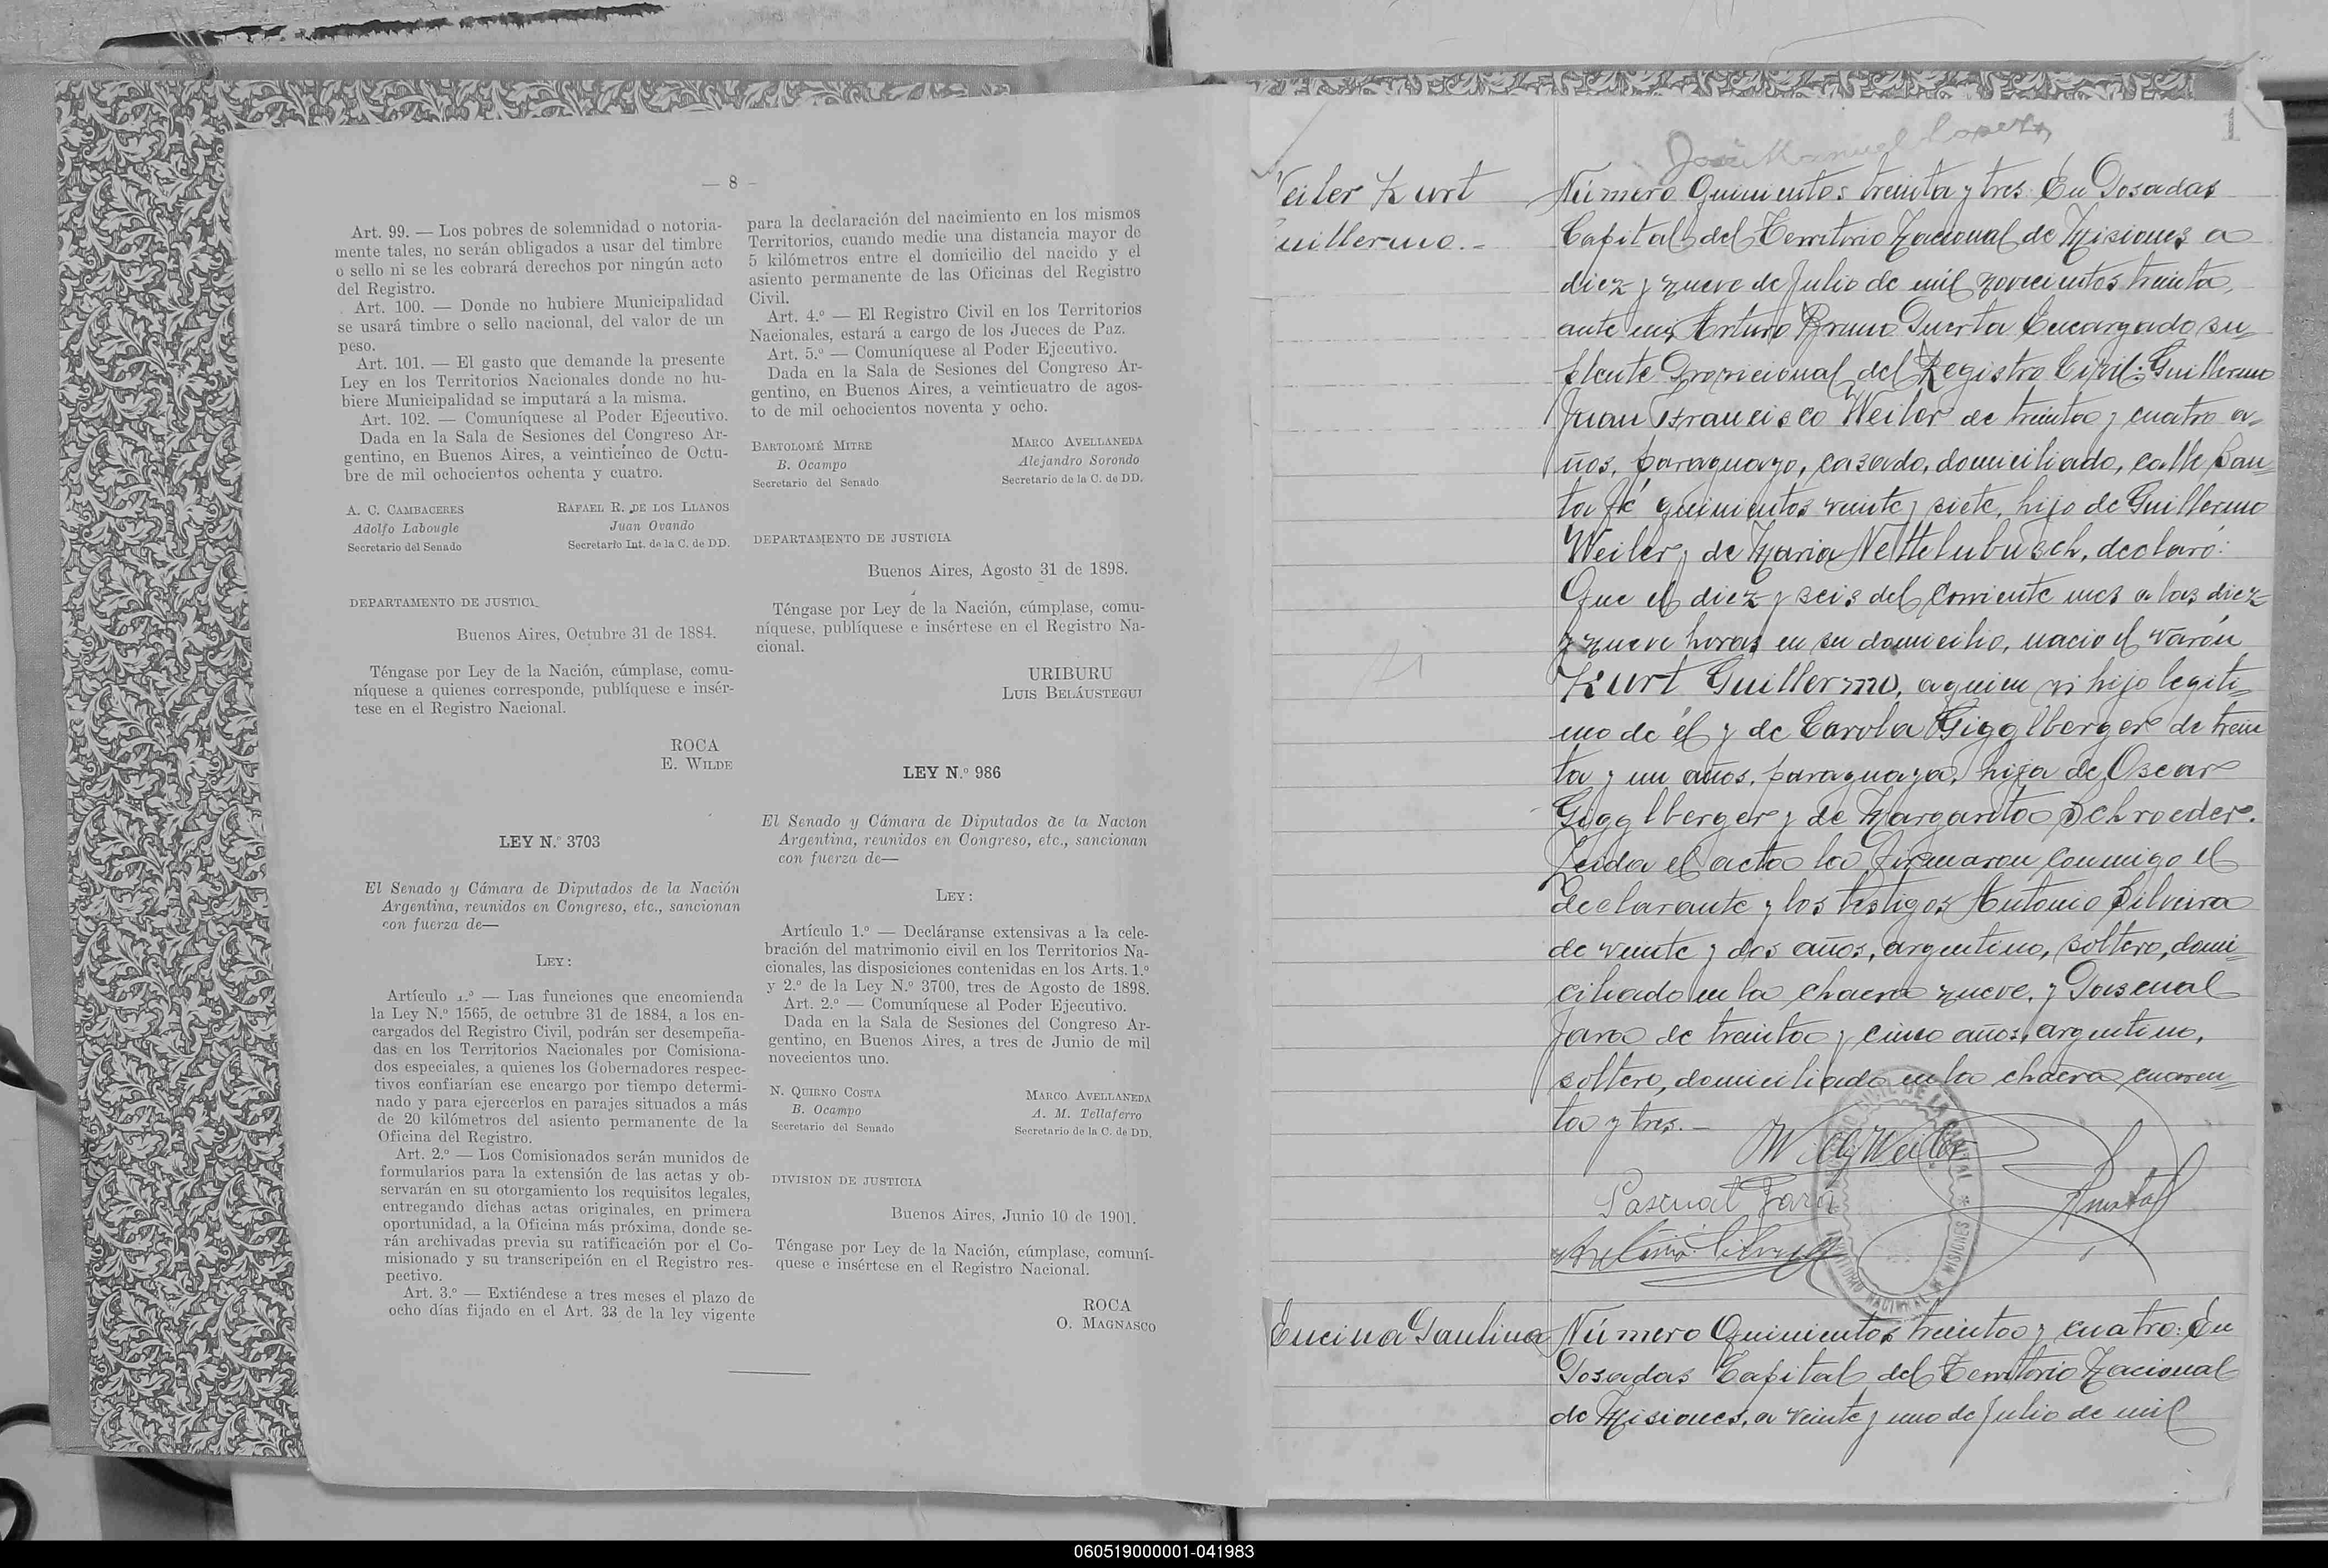 — 8 —
Art. 99. — Los pobres de solemnidad o notoria-
mente tales, no serán obligados a usar del timbre
o sello ni se les cobrará derechos por ningún acto
del Registro.
Art. 100. — Donde no hubiere Municipalidad
se usará timbre o sello nacional, del valor de un
peso.
Art. 101. — El gasto que demande la presente
Ley en los Territorios Nacionales donde no hu-
biere Municipalidad se imputará a la misma.
Art. 102. — Comuníquese al Poder Ejecutivo.
Dada en la Sala de Sesiones del Congreso Ar-
gentino, en Buenos Aires, a veinticinco de Octu-
bre de mil ochocientos ochenta y cuatro.
A. C. CAMBACERES
Adolfo Labougle
Secretario del Senado
RAFAEL R. DE LOS LLANOS
Juan Ovando
Secretario Int. de la C. de DD.
DEPARTAMENTO DE JUSTICI
Buenos Aires, Octubre 31 de 1884.
Téngase por Ley de la Nación, cúmplase, comu-
níquese a quienes corresponde, publíquese e insér-
tese en el Registro Nacional.
ROCA
E. WILDE
LEY N.º 3703
El Senado y Cámara de Diputados de la Nación
Argentina, reunidos en Congreso, etc., sancionan
con fuerza de—
LEY:
Artículo 1.º — Las funciones que encomienda
la Ley N.º 1565, de octubre 31 de 1884, a los en-
cargados del Registro Civil, podrán ser desempeña-
das en los Territorios Nacionales por Comisiona-
dos especiales, a quienes los Gobernadores respec-
tivos confiarían ese encargo por tiempo determi-
nado y para ejercerlos en parajes situados a más
de 20 kilómetros del asiento permanente de la
Oficina del Registro.
Art. 2.º — Los Comisionados serán munidos de
formularios para la extensión de las actas y ob-
servarán en su otorgamiento los requisitos legales,
entregando dichas actas originales, en primera
oportunidad, a la Oficina más próxima, donde se-
rán archivadas previa su ratificación por el Co-
misionado y su transcripción en el Registro res-
pectivo.
Art. 3.º — Extiéndese a tres meses el plazo de
ocho días fijado en el Art. 33 de la ley vigente
para la declaración del nacimiento en los mismos
Territorios, cuando medie una distancia mayor de
5 kilómetros entre el domicilio del nacido y el
asiento permanente de las Oficinas del Registro
Civil.
Art. 4.º — El Registro Civil en los Territorios
Nacionales, estará a cargo de los Jueces de Paz.
Art. 5.º — Comuníquese al Poder Ejecutivo.
Dada en la Sala de Sesiones del Congreso Ar-
gentino, en Buenos Aires, a veinticuatro de agos-
to de mil ochocientos noventa y ocho.
BARTOLOMÉ MITRE
B. Ocampo
Secretario del Senado
MARCO AVELLANEDA
Alejandro Sorondo
Secretario de la C. de DD.
DEPARTAMENTO DE JUSTICIA
Buenos Aires, Agosto 31 de 1898.
Téngase por Ley de la Nación, cúmplase, comu-
níquese, publíquese e insértese en el Registro Na-
cional.
URIBURU
LUIS BELÁUSTEGUI
LEY N.º 986
El Senado y Cámara de Diputados de la Nacion
Argentina, reunidos en Congreso, etc., sancionan
con fuerza de—
LEY:
Artículo 1.º — Decláranse extensivas a la cele-
bración del matrimonio civil en los Territorios Na-
cionales, las disposiciones contenidas en los Arts. 1.º
y 2.º de la Ley N.º 3700, tres de Agosto de 1898.
Art. 2.º — Comuníquese al Poder Ejecutivo.
Dada en la Sala de Sesiones del Congreso Ar-
gentino, en Buenos Aires, a tres de Junio de mil
novecientos uno.
N. QUIRNO COSTA
B. Ocampo
Secretario del Senado
MARCO AVELLANEDA
A. M. Tellaferro
Secretario de la C. de DD.
DIVISION DE JUSTICIA
Buenos Aires, Junio 10 de 1901.
Téngase por Ley de la Nación, cúmplase, comuní-
quese e insértese en el Registro Nacional.
ROCA
O. MAGNASCO
1
José Manuel Lopez
Weiler Kurt
Guillermo.-
Número Quinientos treinta y tres: En Posadas
Capital del Territorio Nacional de Misiones a
diez y nueve de Julio de mil novecientos treinta,
ante mi, Arturo Bruno Puerta Encargado su-
plente Provicional del Registro Civil: Guillermo
Juan Francisco Weiler de treinta y cuatro a-
ños, paraguayo, casado, domiciliado, calle San-
ta Fé quinientos veinte y siete, hijo de Guillermo
Weiler y de Maria Nettelubusch, declaró:
Que el diez y seis del corriente mes a las diez
y nueve horas en su domicilio, nacio el varón
Kurt Guillermo, a quien vi hijo legiti-
mo de él y de Carola Gigglberger de trein
ta y un años, paraguaya, hija de Oscar
Gigglberger y de Margarita Schroeder.
Leida el acta la firmaron conmigo el
declarante y los testigos Antonio Silveira
de veinte y dos años, argentino, soltero, domi-
ciliado en la chacra nueve, y Pascual
Jara de treinta y cinco años, argentino,
soltero, domiciliado en la chacra cuaren-
ta y tres.-
Willy Weiler
Pascual Jara
Antonio Silveira
Encina Paulina
Número Quinientos treinta y cuatro: En
Posadas Capital del Territorio Nacional
de Misiones, a veinte y uno de Julio de mil
060519000001-041983